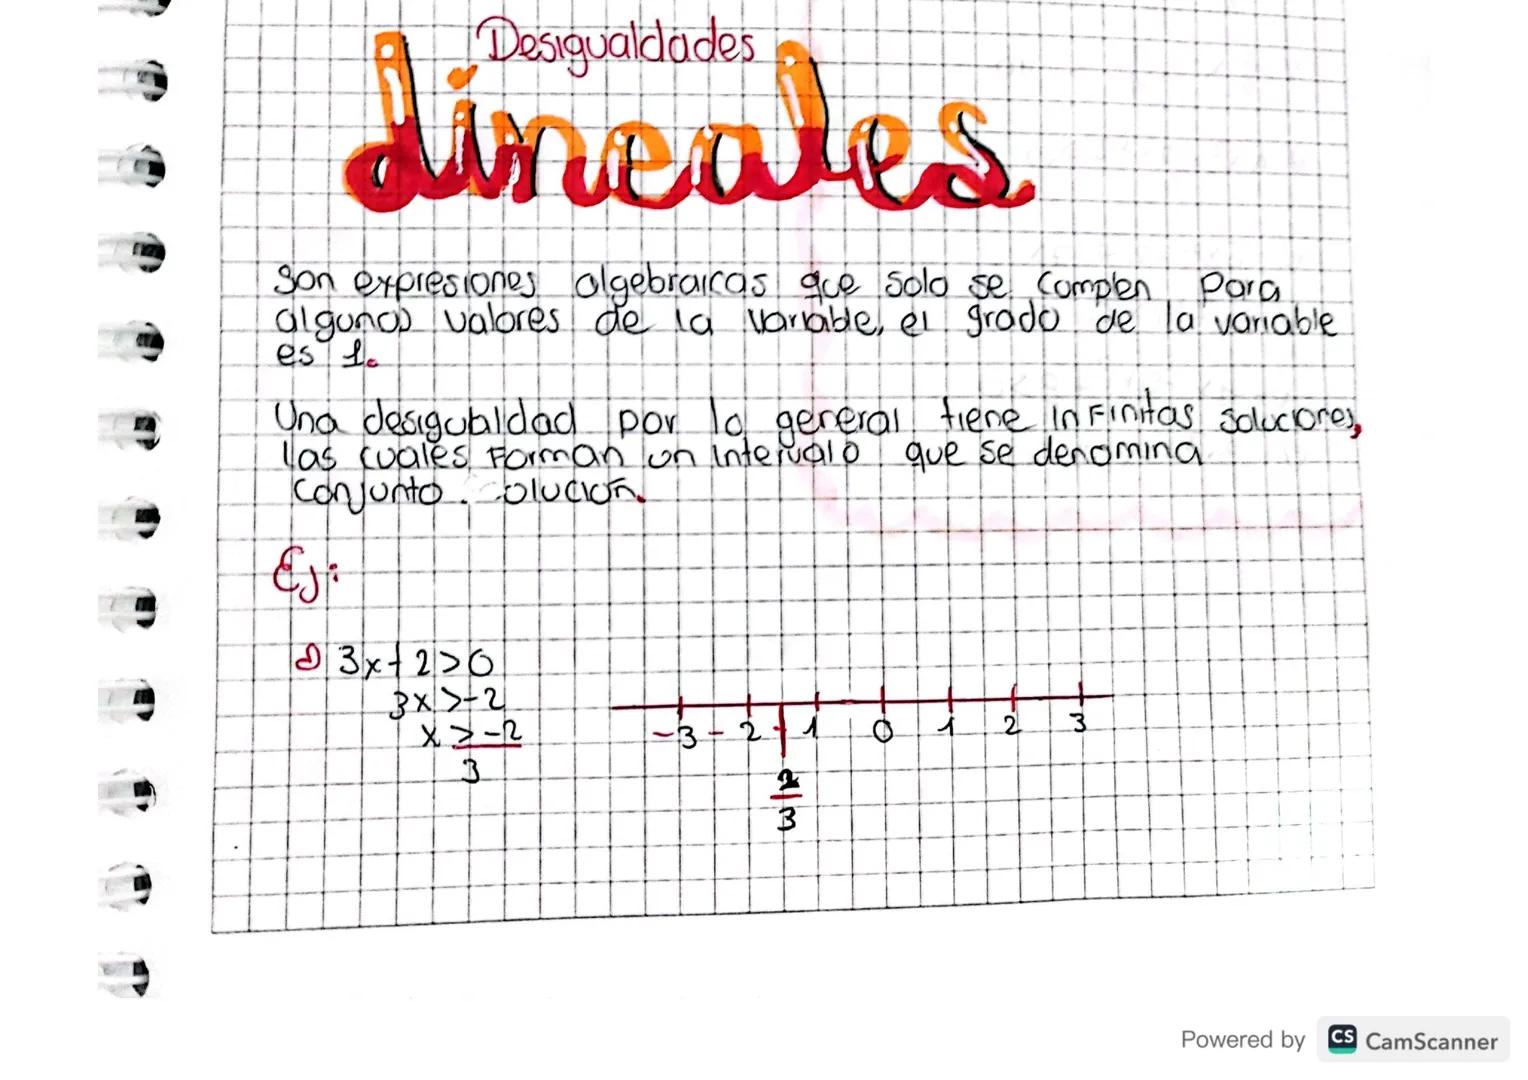 Desigualdades
lineales
Son expresiones algebraicas que solo se complen para
algunos valores de la variable, el grado de la variable
es 1.
Una desigualdad por lo general tiene infinitas soluciones,
las cuales forman un intervalo que se denomina
conjunto solución.
Ej:
3x+2>0
3x>-2
x>-2
3
-3 -2 -1 0 1 2 3
2
3
Powered by CS CamScanner